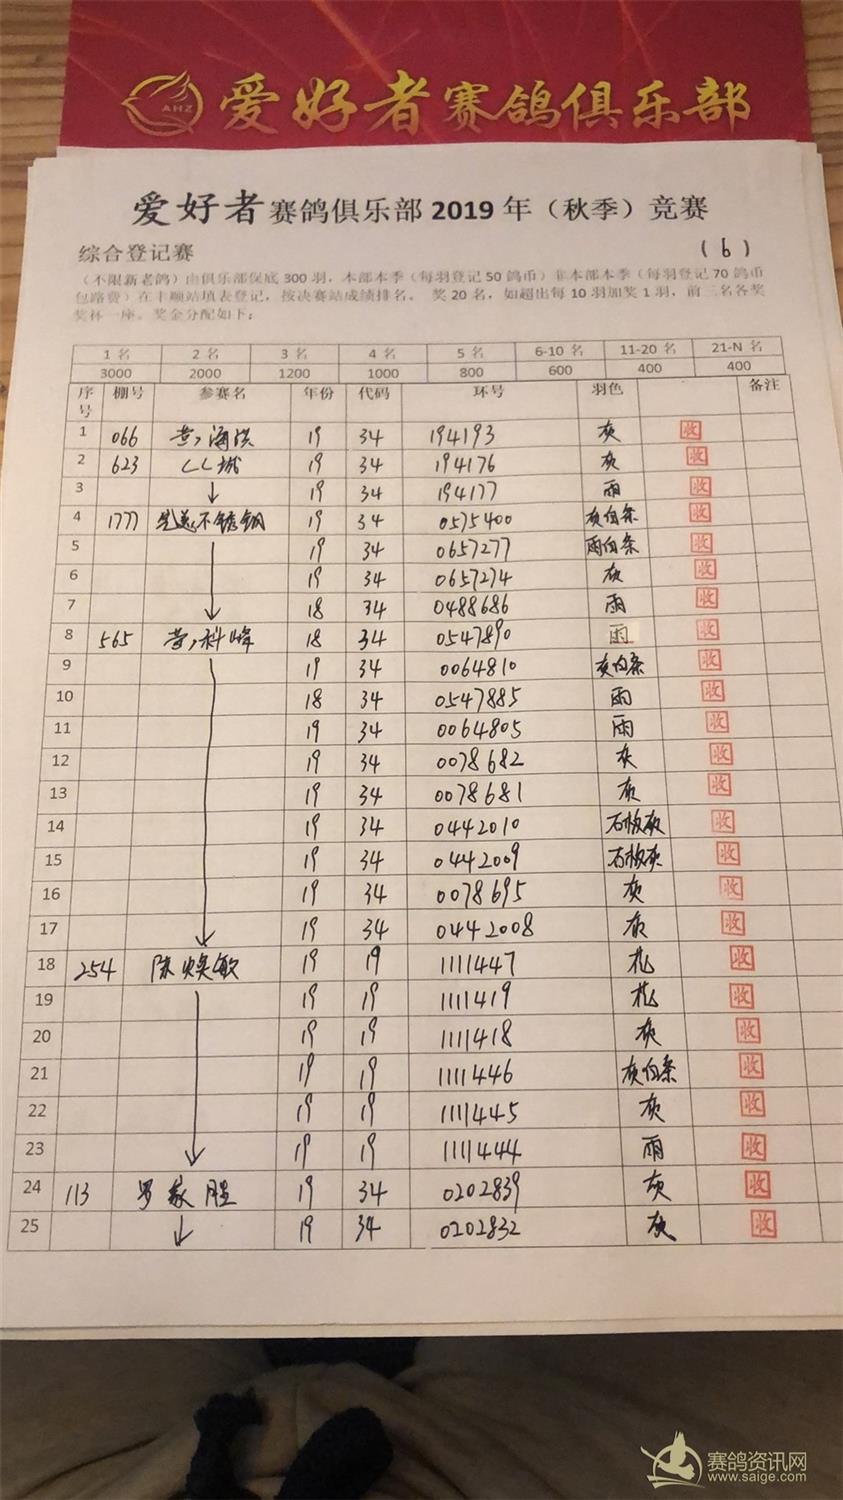 AHZ 爱好者赛鸽俱乐部
爱好者赛鸽俱乐部 2019 年（秋季）竞赛
综合登记赛 (6)
（不限新老鸽）由俱乐部保底 300 羽，本部本季（每羽登记 50 鸽币）非本部本季（每羽登记 70 鸽币
包路费）在丰顺站填表登记，按决赛站成绩排名。 奖 20 名，如超出每 10 羽加奖 1 羽，前三名各奖
奖杯一座。奖金分配如下：
1 名 2 名 3 名 4 名 5 名 6-10 名 11-20 名 21-N 名
3000 2000 1200 1000 800 600 400 400
序号 棚号 参赛名 年份 代码 环号 羽色 备注
1 066 黄海滨 19 34 194193 灰 收
2 623 LL城 19 34 194176 灰 收
3 19 34 194177 雨 收
4 1777 不锈钢 19 34 0575400 灰白条 收
5 19 34 0657277 雨白条 收
6 19 34 0657274 灰 收
7 18 34 0488686 雨 收
8 565 黄科峰 18 34 0547890 雨 收
9 19 34 0064810 灰白条 收
10 18 34 0547885 雨 收
11 19 34 0064805 雨 收
12 19 34 0078682 灰 收
13 19 34 0078681 灰 收
14 19 34 0442010 石板灰 收
15 19 34 0442009 石板灰 收
16 19 34 0078695 灰 收
17 19 34 0442008 灰 收
18 254 陈焕敏 19 19 1111447 花 收
19 19 19 1111419 花 收
20 19 19 1111418 灰 收
21 19 19 1111446 灰白条 收
22 19 19 1111445 灰 收
23 19 19 1111444 雨 收
24 113 罗家胜 19 34 0202839 灰 收
25 19 34 0202832 灰 收
赛鸽资讯网
www.saige.com